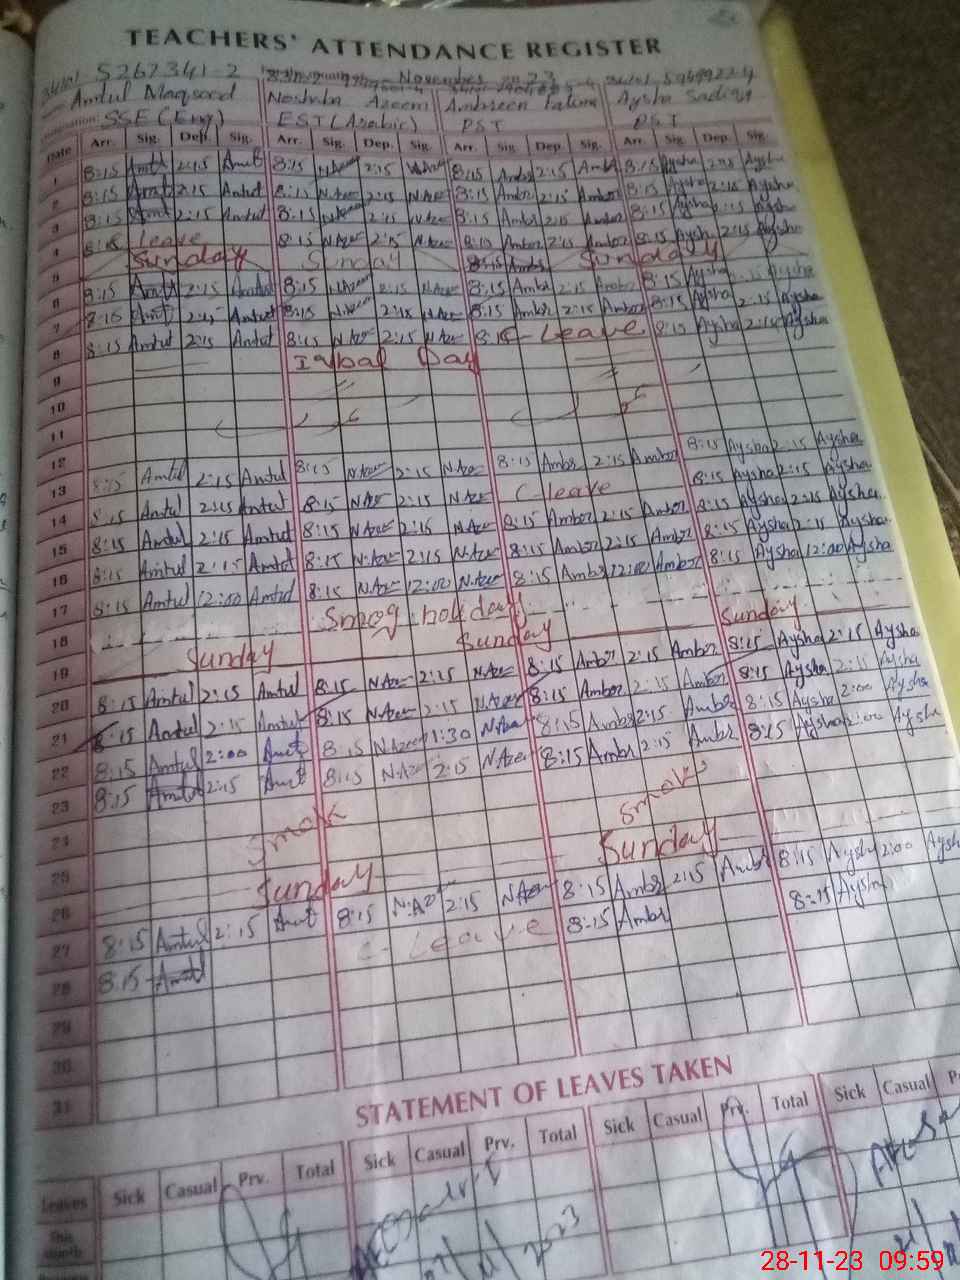 TEACHERS' ATTENDANCE REGISTER
5267341-2 November 2023
Amtul Maqsood Noshaba Azeem Ambreen Fatima Aysha Sadiqa
SSE (Eng) EST (Arabic) PST PST
Date Arr. Sig. Dep. Sig. Arr. Sig. Dep. Sig. Arr. Sig. Dep. Sig. Arr. Sig. Dep. Sig.
1 8:15 Amt 2:15 Amt 8:15 N.Azee 2:15 N.Azee 8:15 Ambr 2:15 Ambr 8:15 Aysha 2:15 Aysha
2 8:15 Amt 2:15 Amtul 8:15 N.Azee 2:15 N.Azee 8:15 Ambr 2:15 Ambr 8:15 Aysha 2:15 Aysha
3 8:15 Amt 2:15 Amtul 8:15 N.Azee 2:15 N.Azee 8:15 Ambr 2:15 Ambr 8:15 Aysha 2:15 Aysha
4 leave 8:15 N.Azee 2:15 N.Azee 8:15 Ambr 2:15 Ambr 8:15 Aysh 2:15 Aysha
5 Sunday Sunday Sunday
6 8:15 Amt 2:15 Amtul 8:15 N.Azee 2:15 N.Azee 8:15 Ambr 2:15 Ambr 8:15 Aysha 2:15 Aysha
7 8:15 Amt 2:15 Amtul 8:15 N.Azee 2:15 N.Azee 8:15 Ambr 2:15 Ambr 8:15 Aysha 2:15 Aysha
8 8:15 Amtul 2:15 Amtul 8:15 N.Aze 2:15 N.Aze 8:15 C-Leave 8:15 Aysha 2:15 Aysha
9 Iqbal Day
10
11
12
13 8:15 Amtul 2:15 Amtul 8:15 N.Aze 2:15 N.Aze 8:15 Ambr 2:15 Ambr 8:15 Aysha 2:15 Aysha
14 8:15 Amtul 2:15 Amtul 8:15 N.Aze 2:15 N.Aze C-leave 8:15 Aysha 2:15 Aysha
15 8:15 Amtul 2:15 Amtul 8:15 N.Aze 2:15 N.Aze 8:15 Ambr 2:15 Ambr 8:15 Aysha 2:15 Aysha
16 8:15 Amtul 2:15 Amtul 8:15 N.Aze 2:15 N.Aze 8:15 Ambr 2:15 Ambr 8:15 Aysha 2:15 Aysha
17 8:15 Amtul 12:00 Amtul 8:15 N.Aze 12:00 N.Aze 8:15 Ambr 12:00 Ambr 8:15 Aysha 12:00 Aysha
18 Smog holiday
19 Sunday Sunday Sunday
20 8:15 Amtul 2:15 Amtul 8:15 N.Aze 2:15 N.Aze 8:15 Ambr 2:15 Ambr 8:15 Aysha 2:15 Aysha
21 8:15 Amtul 2:15 Amtul 8:15 N.Aze 2:15 N.Aze 8:15 Ambr 2:15 Ambr 8:15 Aysha 2:15 Aysha
22 8:15 Amtul 2:00 Amt 8:15 N.Azee 1:30 N.Azee 8:15 Ambr 2:15 Ambr 8:15 Aysha 2:00 Aysha
23 8:15 Amtul 2:15 Amt 8:15 N.Az 2:15 N.Azee 8:15 Ambr 2:15 Ambr 8:15 Aysha 2:00 Aysha
24
25
26 Sunday Sunday
27 8:15 Amtul 2:15 Amt 8:15 N.Az 2:15 N.Azee 8:15 Ambr 2:15 Ambr 8:15 Aysha 2:00 Aysh
28 8:15 Amtul C-Leave 8:15 Ambr 8:15 Aysha
29
30
31
STATEMENT OF LEAVES TAKEN
Leaves Sick Casual Prv. Total Sick Casual Prv. Total Sick Casual Prv. Total Sick Casual
This Month
28-11-23 09:59